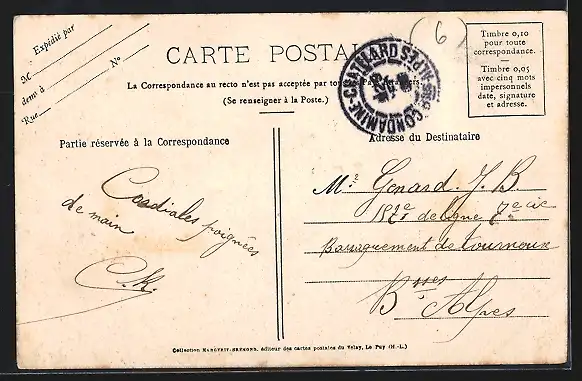 Expédié par
M
demt à N°
Rue
CARTE POSTALE
(6)
La Correspondance au recto n'est pas acceptée par tous
(Se renseigner à la Poste.)
Timbre 0,10
pour toute
correspondance.
Timbre 0,05
avec cinq mots
impersonnels
date, signature
et adresse.
CONDAMINE-CHATELARD BSES ALPES
Partie réservée à la Correspondance
Adresse du Destinataire
Cordiales poignées
de main
C. K.
Mr Genard. J. B.
de ligne 7e cie
Baraquement de Tournoux
Bsses Alpes
Collection MARGERIT-BRÉMOND, éditeur des cartes postales du Velay, Le Puy (H.-L.)